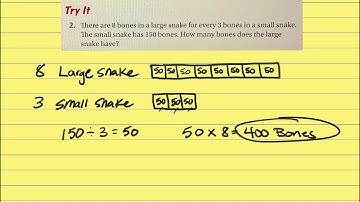 Try It
2. There are 8 bones in a large snake for every 3 bones in a small snake.
The small snake has 150 bones. How many bones does the large
snake have?
8 Large snake 50 50 50 50 50 50 50 50
3 small snake 50 50 50
150 ÷ 3 = 50 50 x 8 = 400 Bones